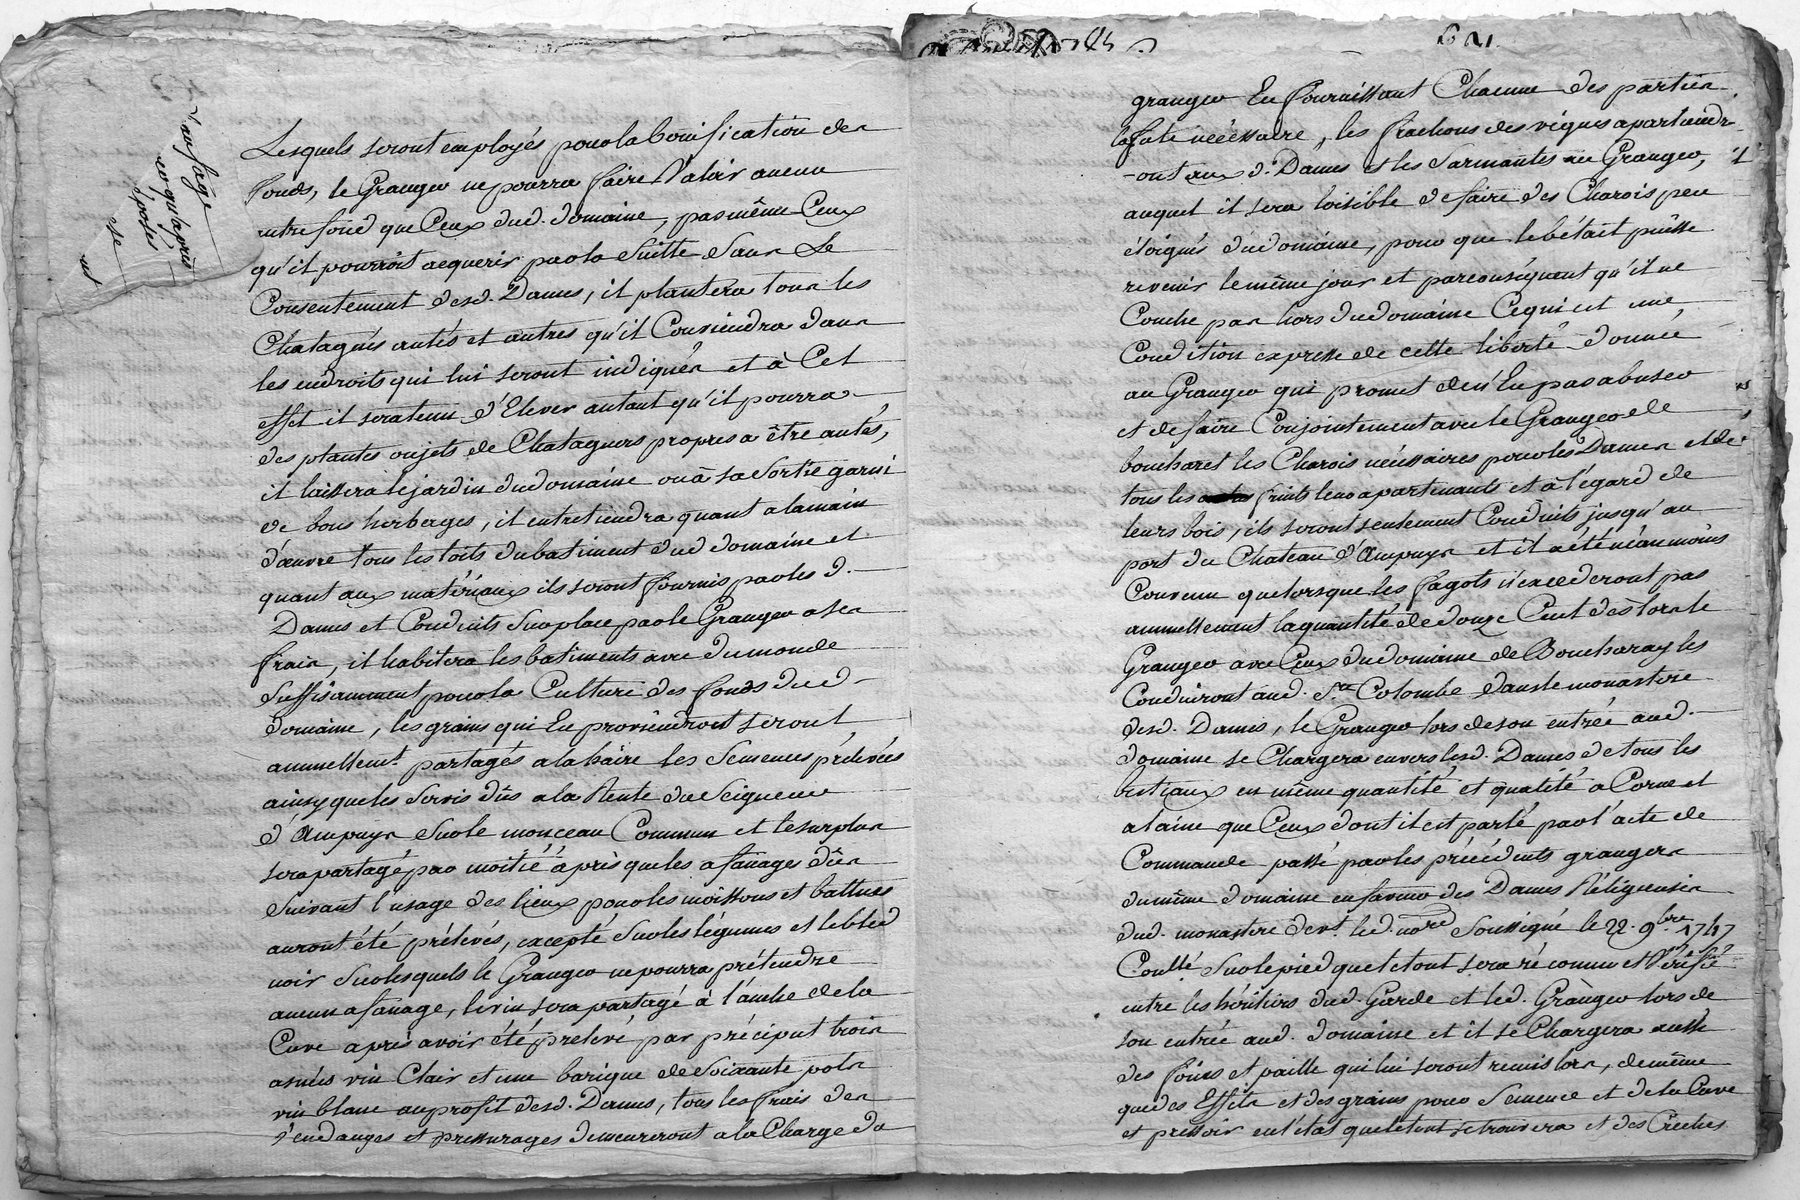 Lesquels seront employés pour la bonification des
fonds, le Granger ne pourra faire Valoir aucun
autre fond que Ceux dud. domaine, pas même Ceux
qu'il pourroit acquerir par la Suitte Sans Le
Consentement desd. Dames, il plantera tous les
Chatagñés antés et autres qu'il Conviendra dans
les endroits qui lui seront indiqués et à Cet
effet il sera tenu d'Elever autant qu'il pourra
des plantes sujets de Chatagners propres a être antés,
il laissera le jardin dud domaine ou à sa Sortie garni
de bons herbages, il entretiendra quant a la main
d'œuvre tous les toits du batiment dud domaine et
quant aux matériaux ils seront fournis par les d.
Dames et Conduits Sur place par le Granger a ses
frais, il habitera les batiments avec du monde
Suffisamment pour la Culture des fonds dud
domaine, les grains qui En proviendront seront
annuellemt. partagés a la haire les Semences prélevées
ainsy que les Servis dûs a la Rente du Seigneur
d'Ampuys Sur le monceau Commun et le surplus
sera partagé par moitié, après que les afanages dûs
Suivant l'usage des lieux pour les moissons et battues
auront été prélevés, excepté Sur les légumes et le bled
noir Sur lesquels le Granger ne pourra prétendre
aucun afanage, le vin sera partagé à l'anche de la
Cuve après avoir été prélevé par préciput trois
asnées vin Clair et une barique de Soixante pots
vin blanc au profit desd. Dames, tous les frais des
Vendanges et pressurages demeureront a la Charge du
afanage
après
granger En fournissant Chacune des parties
la futé nécéssaire, les frachons des vignes apartiendr
-ont aux d. Dames et les Sarmantes au Granger,
auquel il sera loisible de faire des Charois peu
éloignés dud domaine, pour que le bétail puisse
revenir le même jour et par conséquent qu'il ne
Couche pas hors du domaine Ce qui est une
Condition expresse de cette liberté donnée
au Granger qui promet de n'En pas abuser
et de faire Conjointement avec le Granger de
boucharet les Charois nécéssaires pour les Dames et de
tous les fruits leur apartenants et à l'égard de
leurs bois, ils seront seulement Conduits jusqu'au
port du Chateau d'Ampuys et il a été néanmoins
Convenu que lorsque les fagots n'excederont pas
annuellement la quantité de douze Cent dès lors le
Granger avec Ceux du domaine de Boucharay les
Conduiront aud. Ste Colombe dans le monastere
desd. Dames, le Granger lors de son entrée aud.
domaine se Chargera envers lesd. Dames de tous les
bestiaux en même quantité et qualité a Corne et
a laine que Ceux dont il est parlé par l'acte de
Commande passé par les précédents grangers
du même domaine en faveur des Dames Réligieuses
dud. monastere devt. led. nore Soussigné le 22. 9bre 1747
Coullé Sur le pied que le tout sera réconnu et Vérifié
entre les héritiers dud. Garde et led. Granger lors de
son entrée aud. domaine et il se Chargera aussi
des foins et paille qui lui seront remis lors, de même
que des Effets et des grains pour Semence et de la Cuve
et pressoir en l'état que le tout se trouvera et des Creches